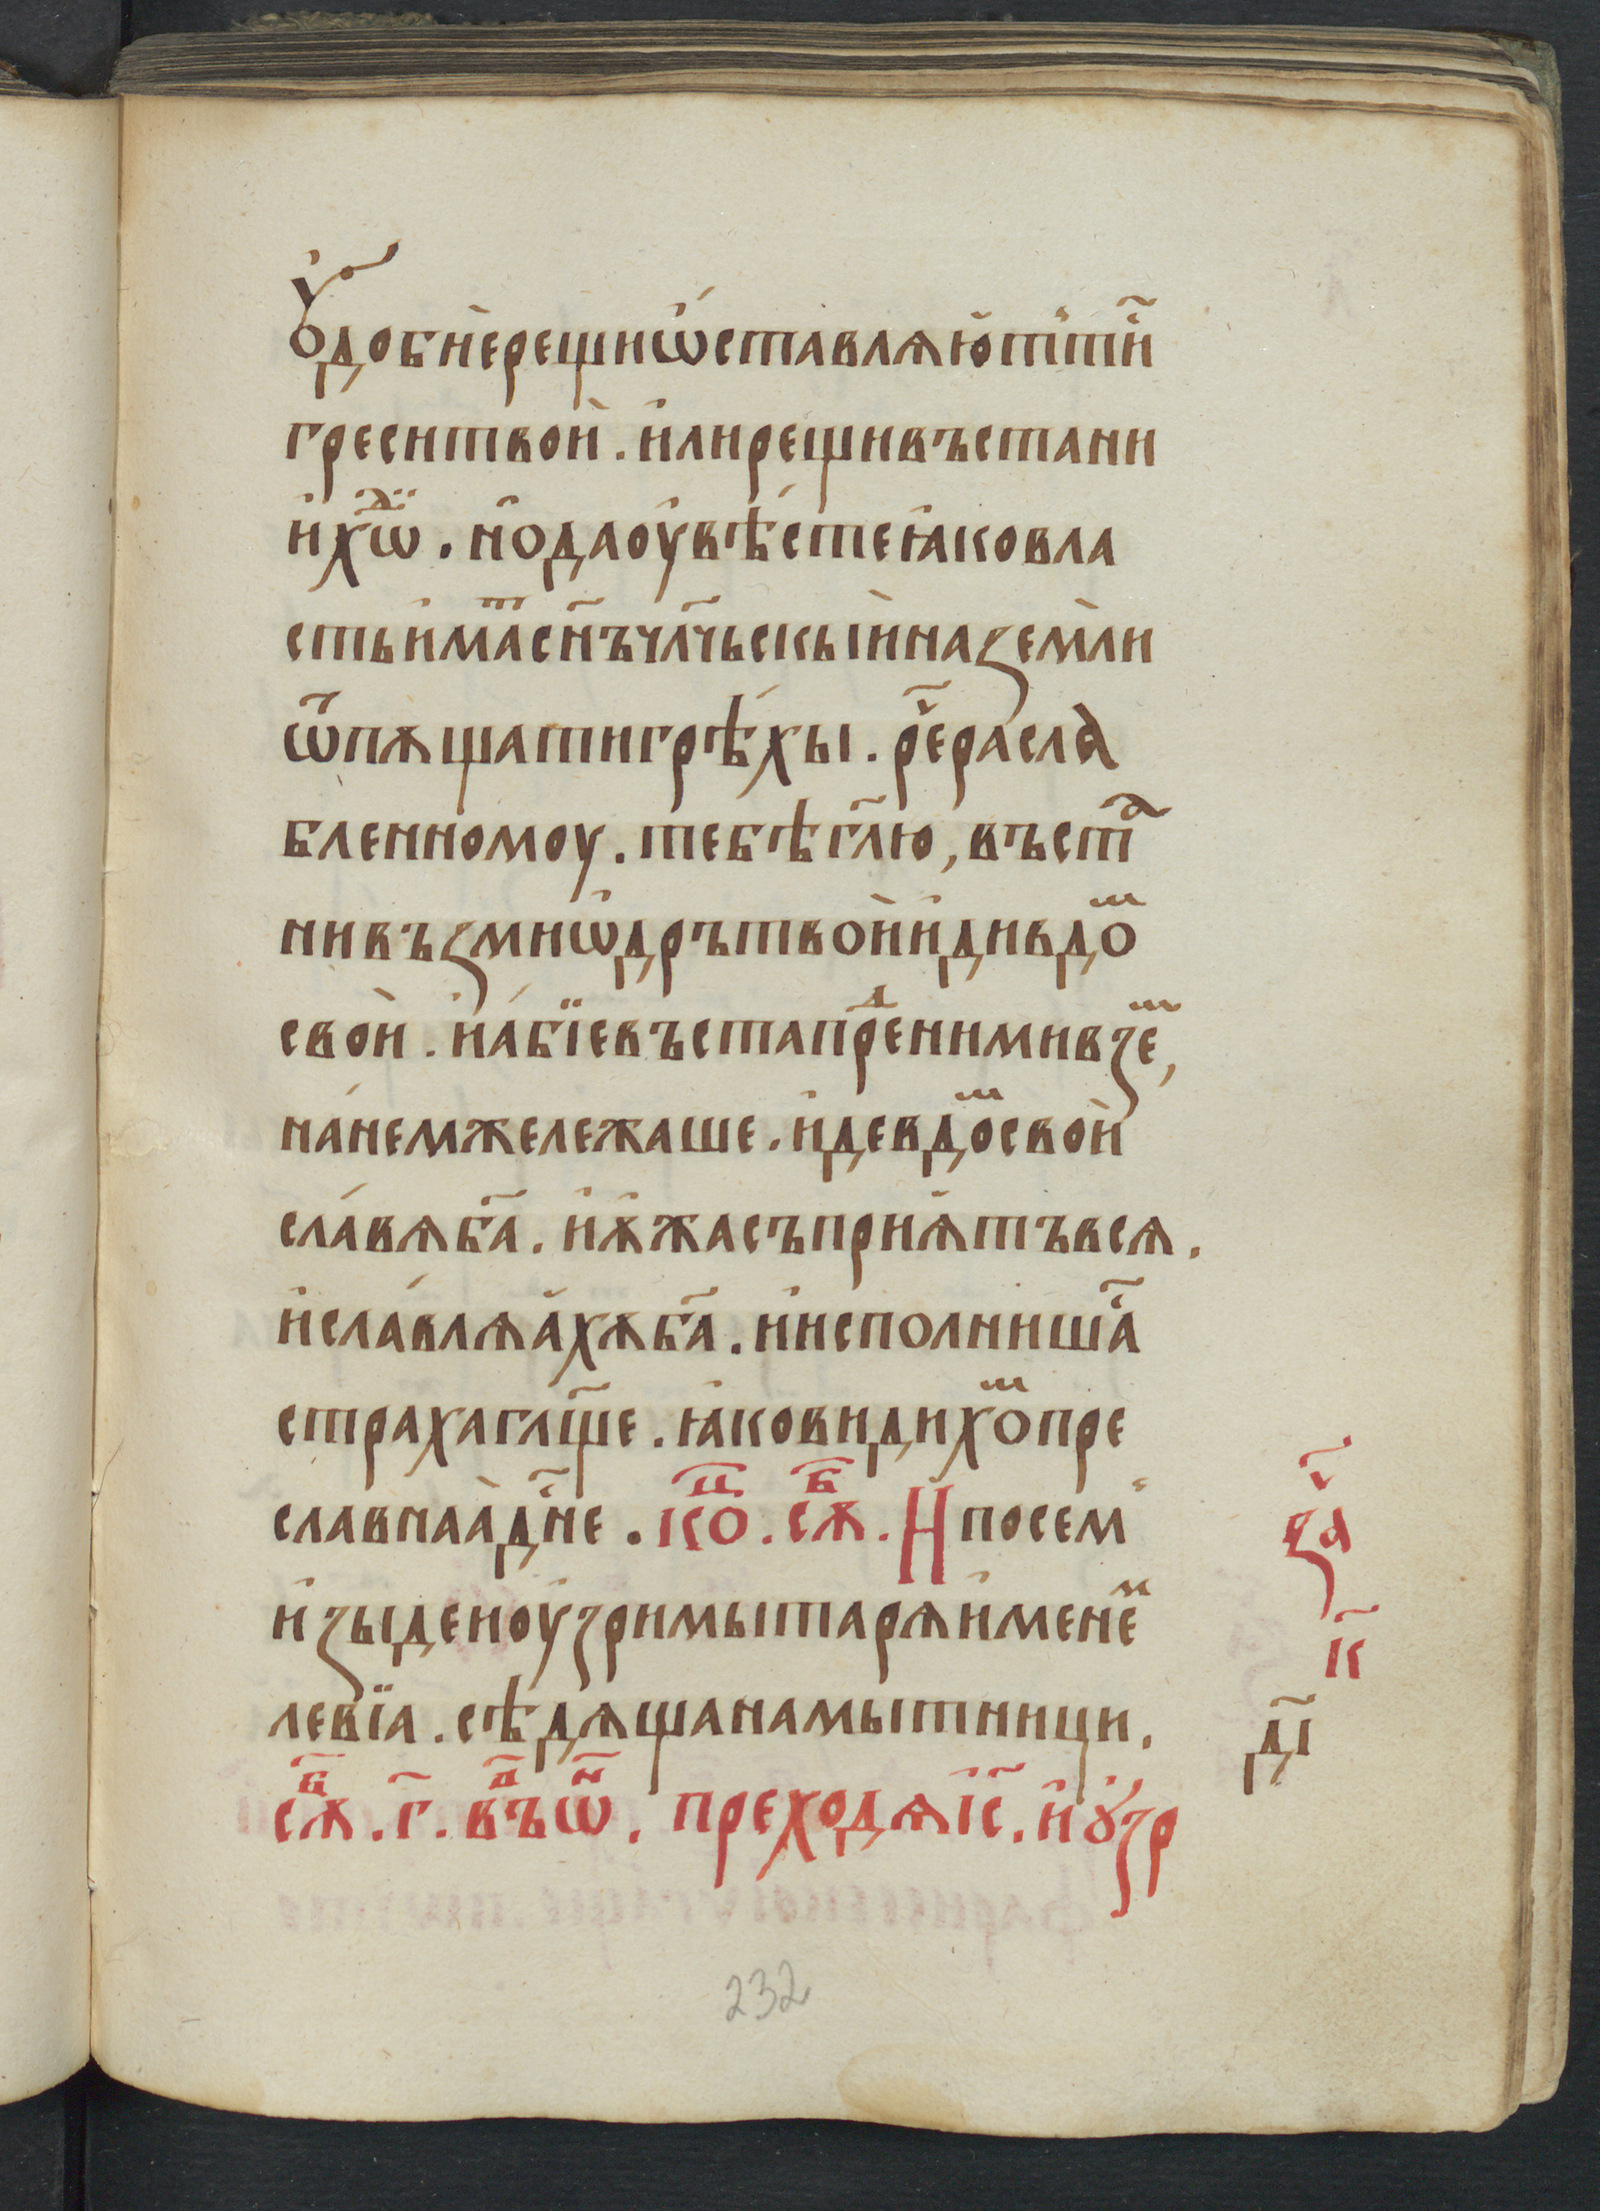 ѹ҆добнѣ́е рещи ѡ҆ставлѧю҆т ти҆ н҃
греси твои҆ . и҆ли рещи въстани
и҆ хѡⷣ . но҆ да оу҆вѣ́сте ꙗ҆ко вла
сть и҆маⷮ сн҃ъ чл҃чьскыи҆ на ꙁемли̇
ѿпѫщати грѣ́хы . рⷱ҇е расла
бленномоу . тебѣ гл҃ю , въстⷶ
ни въꙁми ѡ҆дръ твои҆ и҆ди в доⷨ
свои҆ . и҆ а́бїе въста преⷣ ними вꙁеⷨ ,
на́ немже лежаше . и҆де в доⷨ свои҆
сла́вѧ б҃а . и҆ ѫ҆жасъ прїѧ҆тъ всѧ .
и҆ сла́влѧа҆хѫ б҃а . и҆ исполнишаⷭ҇
страха гл҃ще . ꙗ҆ко видихоⷨ пре
славнаа҆ дн҃е . коⷰ . сѫⷠ . И по сем
и҆ꙁыде и҆ оу҆ꙁри мытарѧ и҆менеⷨ
левїа . сѣдѧща на мытници .
сѫⷠ . г҃ . въⷣ ѡⷩ . преходѧ і҆с҃ . и҆ ꙋ҆ꙁр
ꙁа҃
к҃
д҃і
232